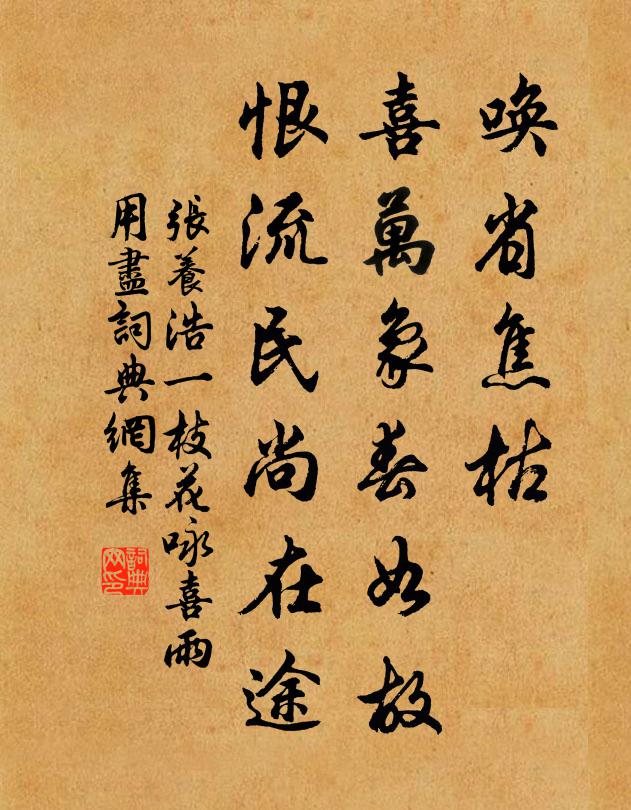 喚省焦枯
喜萬象春如故
恨流民尚在途
張養浩一枝花咏喜雨
用盡詞典網集
詞典